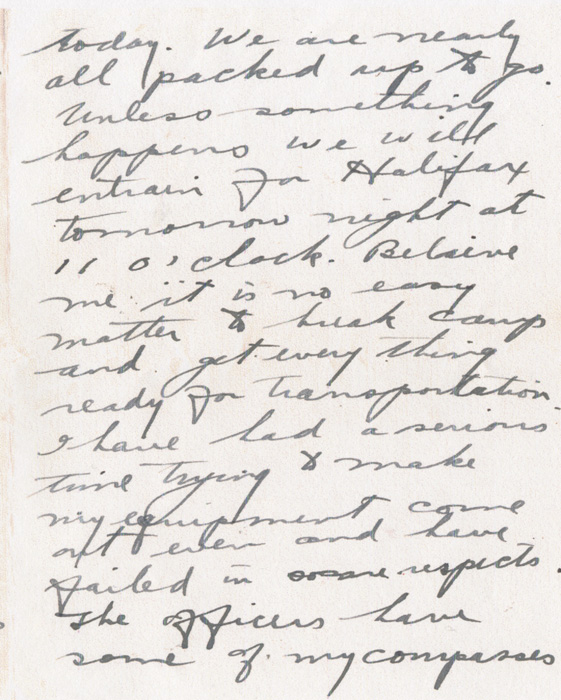 today. We are nearly
all packed up to go.
Unless something
happens we will
entrain for Halifax
tomorrow night at
11 o'clock. Beleive
me it is no easy
matter to break camp
and get every thing
ready for transportation.
I have had a serious
time trying to make
my equipment come
out even and have
failed in some respects.
The officers have
some of my compasses